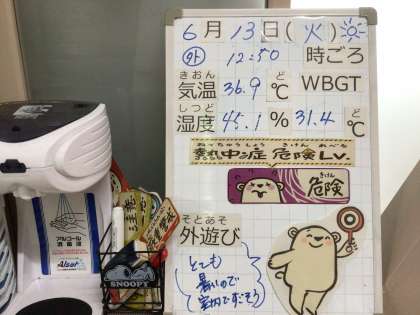 6月13日(火)
外 12:50 時ごろ
きおん ど
気温 36.9 ℃ WBGT
しつど ど
湿度 45.1 % 31.4 ℃
ねっちゅうしょう きけん れべる
熱中症 危険LV.
きけん
危険
そとあそ
外遊び
とても
暑いので
室内ですごそう
アルコール
消毒液
Alsot
SNOOPY